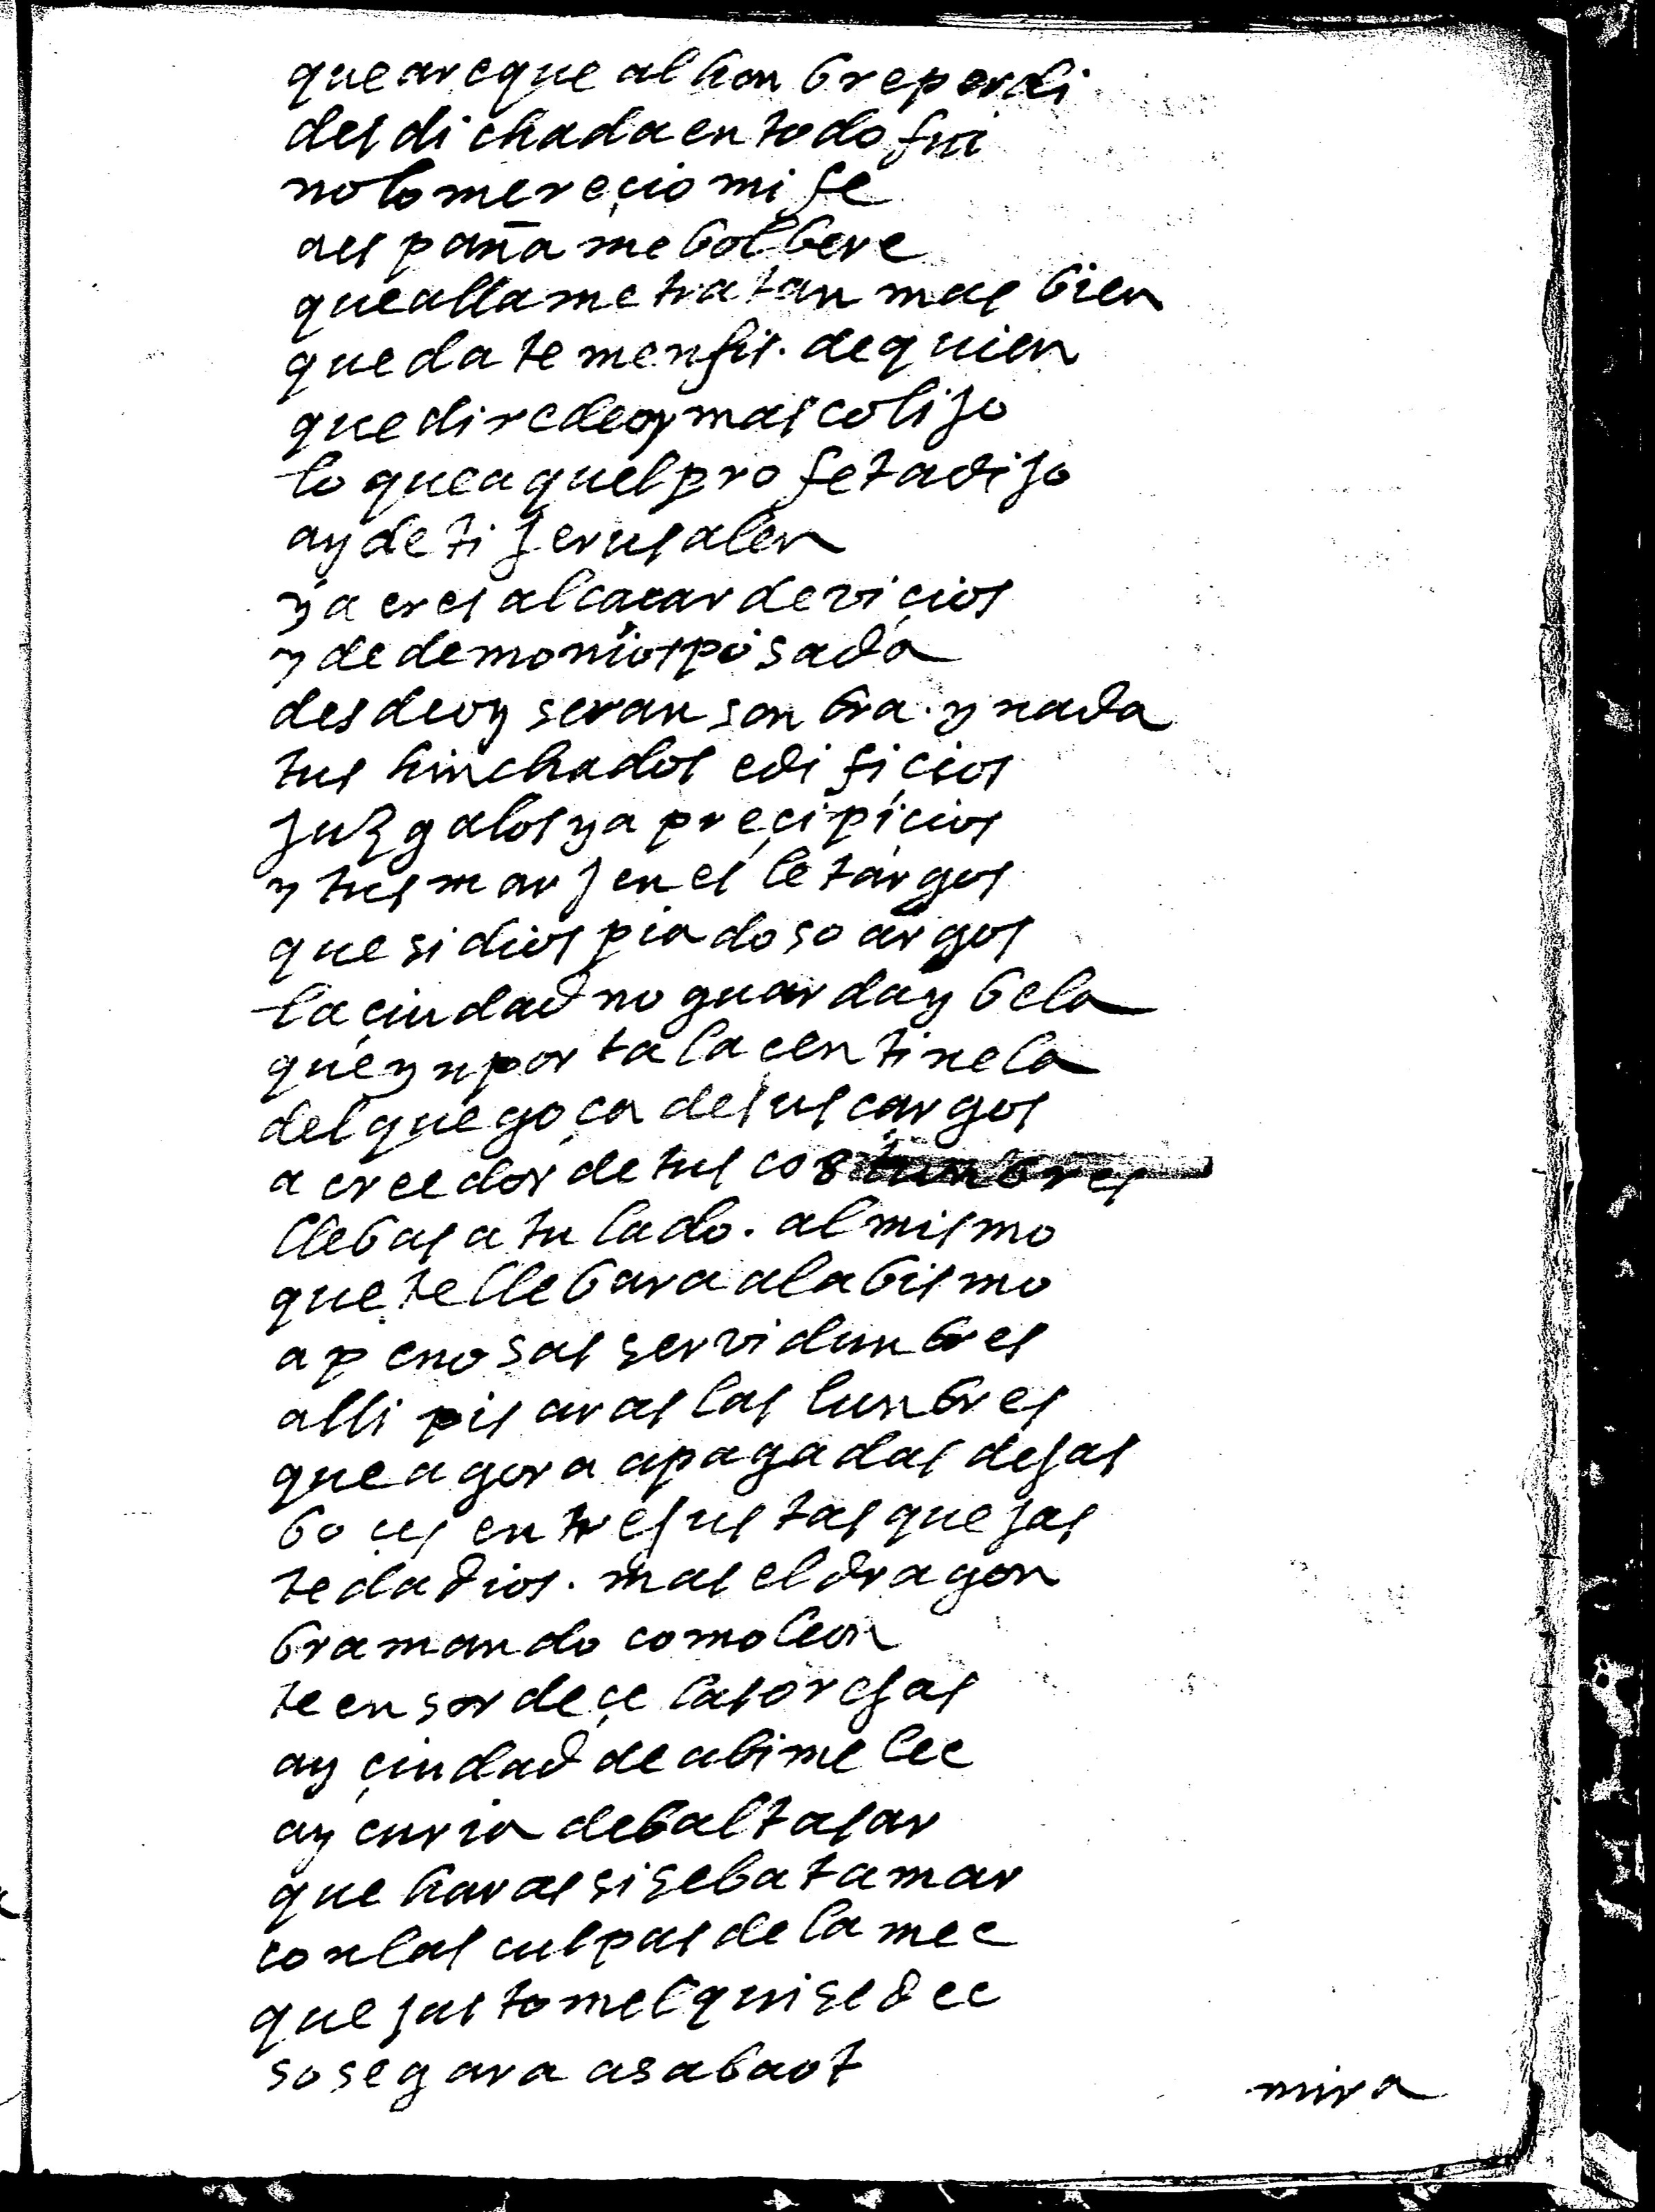 que are que al honbre perdi
desdichada en todo fui
no lo mereçio mi fe
a españa me bolbere
que alla me tratan mas bien
quedate menfis. de quien
que dire de oy mas colijo
lo que aquel profeta dijo
ay de ti jerusalen
ya eres alcaçar de viçios
y de demonios posada
desde oy seran sonbra. y nada
tus hinchados edifiçios
juzgalos ya preçipiçios
y tus marjenes letargos
que si dios piadoso argos
la çiudad no guarda y bela
que ynporta la çentinela
del que goça de sus cargos
acreedor de tus costunbres
llebas a tu lado. al mismo
que te llebara al abismo
a penosas servidunbres
alli pisaras las lunbres
que agora apagadas dejas
boçes entre justas quejas
te da dios. mas el dragon
bramando como leon
te ensordeçe las orejas
ay çiudad de abimelec
ay curia de baltasar
que haras si se batamar
con las culpas de lamec
que justo melquisedec
sosegara a sabaot
mira